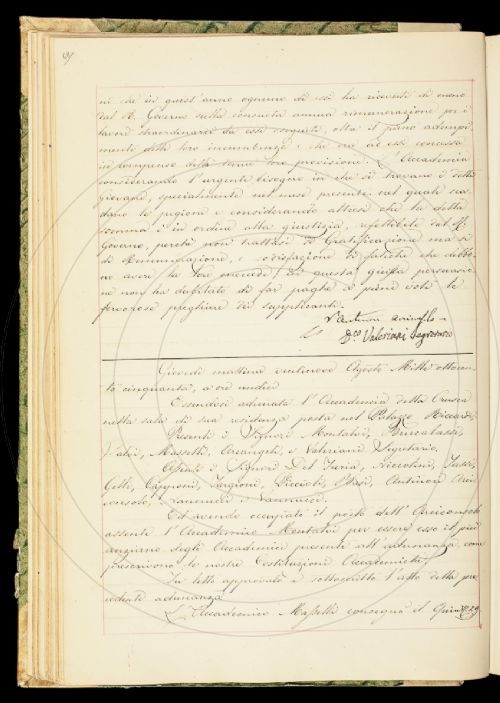 ni che in quest'anno ognuno di essi ha ricevuti di meno
dal R. Governo sulla consueta annua rimunerazione per i
lavori straordinarj da essi compiuti, oltre il pieno adempi
mento delle loro incumbenze; che ora ad essi concessa
in compenso della loro previsione. L'Accademia
considerando l'urgente bisogno in che si trovano i detti
giovani, specialmente nel mese presente nel quale sca
dono le pigioni e considerando altresì che la detta
somma è in ordine alla giustizia, refettibile dal R.
Governo, perchè non trattasi di Gratificazione ma sì
di Remunerazione, e sodisfazione di fatiche che debbo
no avere la loro mercede; di questa guisa persuasa
ne non ha dubitato di far paga a pieni voti le
fervorose preghiere dei supplicanti.
V. Antinori Arciconsolo
D.co Valeriani Segretario
Giovedì mattina ventinove Agosto Mille ottocen
to cinquanta, a ore undici
Essendosi adunata l'Accademia della Crusca
nella sala di sua residenza posta nel Palazzo Riccardi
Presenti i Signori Montalvi, Brucalassi,
Salvi, Masselli, Arcangeli, e Valeriani Segretario.
Assenti i Signori Del Furia, Niccolini,
Capponi, Targioni, Puccioli, Antinori Arci
consolo, e Vannucci.
Ed avendo occupato il posto dell'Arciconsolo
assente l'Accademico Montalvi per essere esso il più
anziano degli Accademici presenti all'adunanza, come
prescrivono le nostre Costituzioni Accademiche,
Fu letto approvato e sottoscritto l'atto della pre
cedente adunanza
L'Accademico Masselli consegna il Quin.o 29